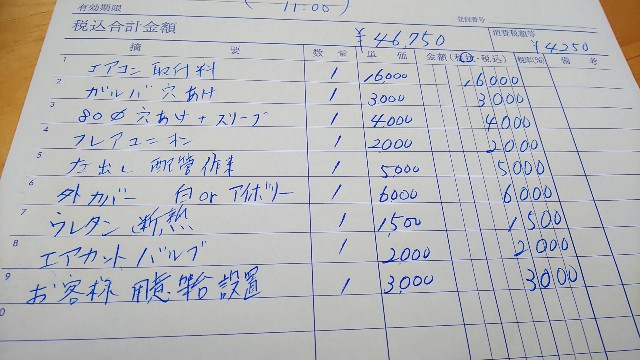 有効期限 11:00
登録番号
税込合計金額 ¥46,750 消費税額等 ¥4250
摘要 数量 単価 金額(税抜・税込) 税率(%) 備考
1 エアコン取付料 1 16000 16000
2 ガルバ穴あけ 1 3000 3000
3 80φ穴あけ+スリーブ 1 4000 4000
4 フレアユニオン 1 2000 2000
5 左出し配管作業 1 5000 5000
6 外カバー 白orアイボリー 1 6000 6000
7 ウレタン断熱 1 1500 1500
8 エアカットバルブ 1 2000 2000
9 お客様用意架台設置 1 3000 3000
0